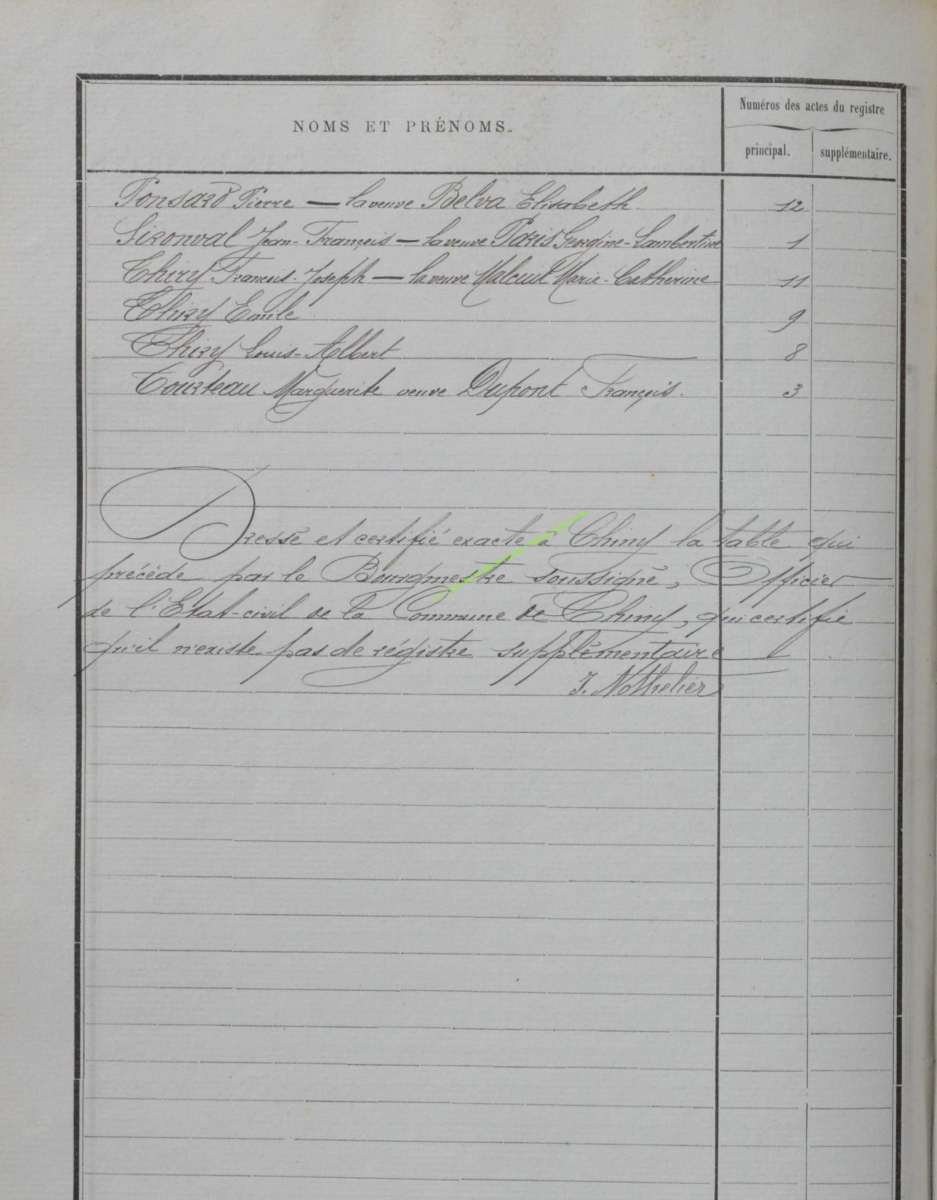 NOMS ET PRÉNOMS.
Numéros des actes du registre
principal.
supplémentaire.
Ponsard Pierre — la veuve Belva Elisabeth 12
Sironval Jean-François — la veuve Paris Georgine-Lambertine 1
Thiry François-Joseph — la veuve Marie-Catherine 11
Thiry Emile 9
Thiry Louis-Albert 8
Tourteau Marguerite veuve Dupont François. 3
Dressé et certifié exacte à Chiny la table qui
précède par le Bourgmestre soussigné, Officier
de l'Etat-civil de la Commune de Chiny, qui certifie
qu'il n'existe pas de régistre supplémentaire
J. Nothelier